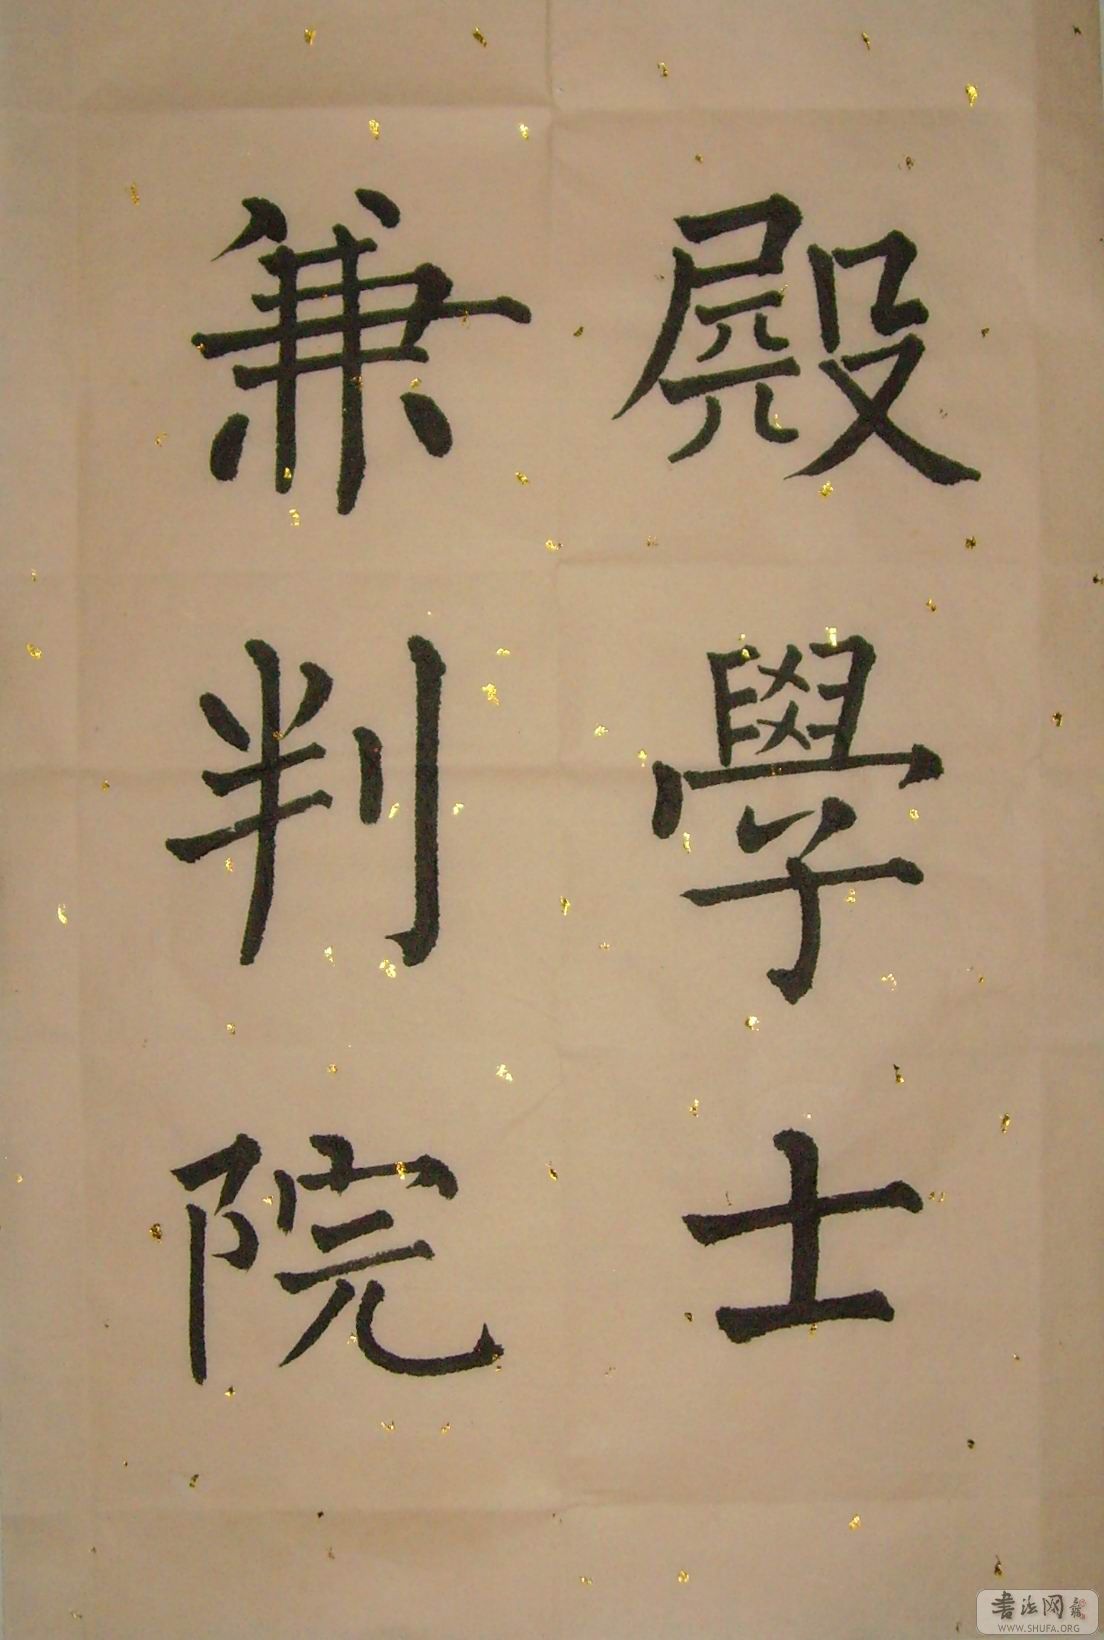 殿學士
兼判院
書法网
WWW.SHUFA.ORG